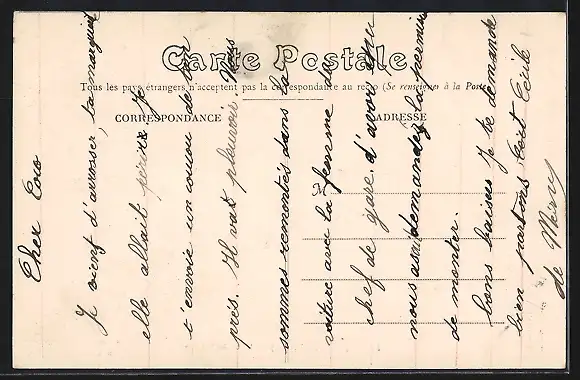 Carte Postale
Tous les pays étrangers n'acceptent pas la correspondance au recto (Se renseigner à la Poste
CORRESPONDANCE
ADRESSE
Cher Coco
Je vient d'arroser, ta marguerite
elle allait périr. Je
t'envoie un coucou de bon
près. Il vat pleuvoir Nous
sommes remontés dans la
voiture avec la femme du
chef de gare d'avoir
nous demandez la permis
de monter.
bons baisers Je te demande
bien partons Cécile
de Merry